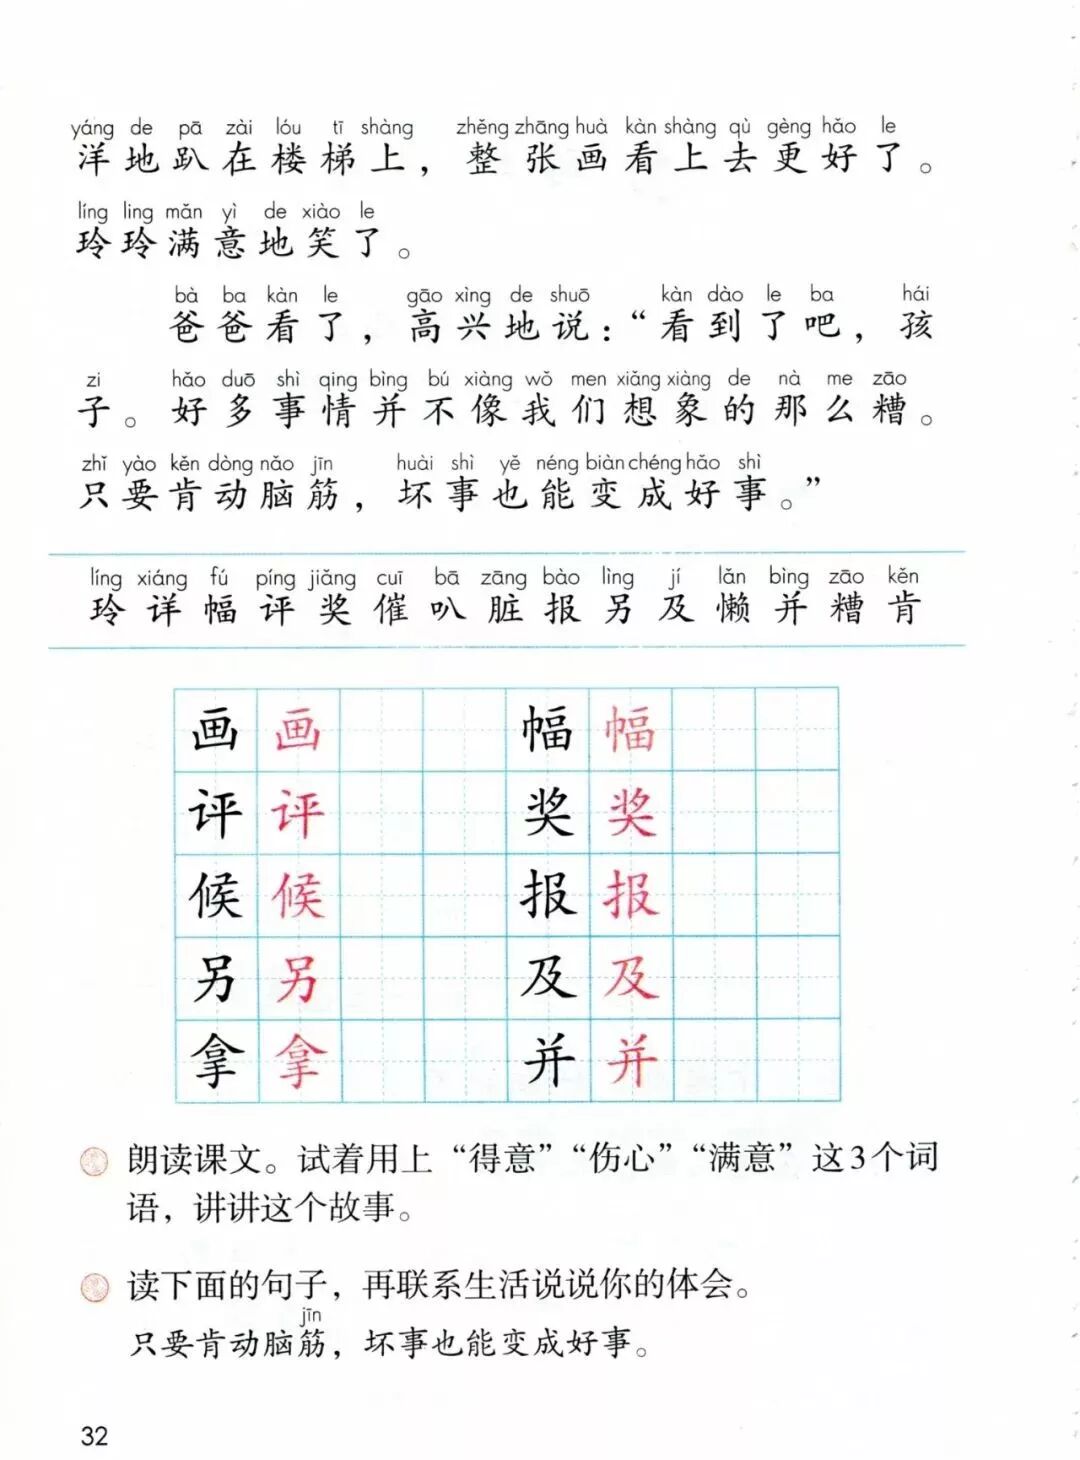 yáng de pā zài lóu tī shàng zhěng zhāng huà kàn shàng qù gèng hǎo le
洋地趴在楼梯上，整张画看上去更好了。
líng ling mǎn yì de xiào le
玲玲满意地笑了。
bà ba kàn le gāo xìng de shuō kàn dào le ba hái
爸爸看了，高兴地说：“看到了吧，孩
zi hǎo duō shì qing bìng bú xiàng wǒ men xiǎng xiàng de nà me zāo
子。好多事情并不像我们想象的那么糟。
zhǐ yào kěn dòng nǎo jīn huài shì yě néng biàn chéng hǎo shì
只要肯动脑筋，坏事也能变成好事。”
líng xiáng fú píng jiǎng cuī bā zāng bào lìng jí lǎn bìng zāo kěn
玲详幅评奖催叭脏报另及懒并糟肯
画 画 幅 幅
评 评 奖 奖
候 候 报 报
另 另 及 及
拿 拿 并 并
朗读课文。试着用上“得意”“伤心”“满意”这3个词
语，讲讲这个故事。
读下面的句子，再联系生活说说你的体会。
jīn
只要肯动脑筋，坏事也能变成好事。
32